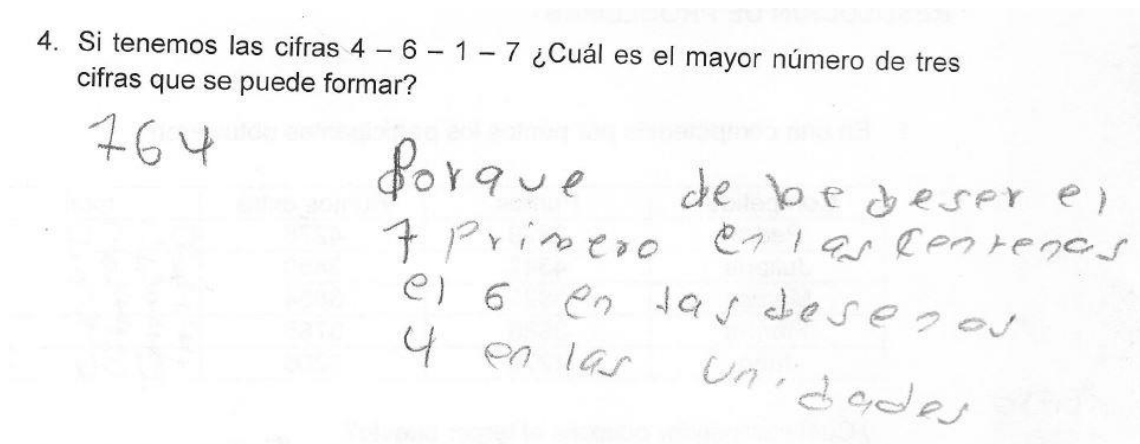 4. Si tenemos las cifras 4 – 6 – 1 – 7 ¿Cuál es el mayor número de tres
cifras que se puede formar?
764
Porque debe deser el
7 primero en las centenas
el 6 en las desenas
4 en las unidades